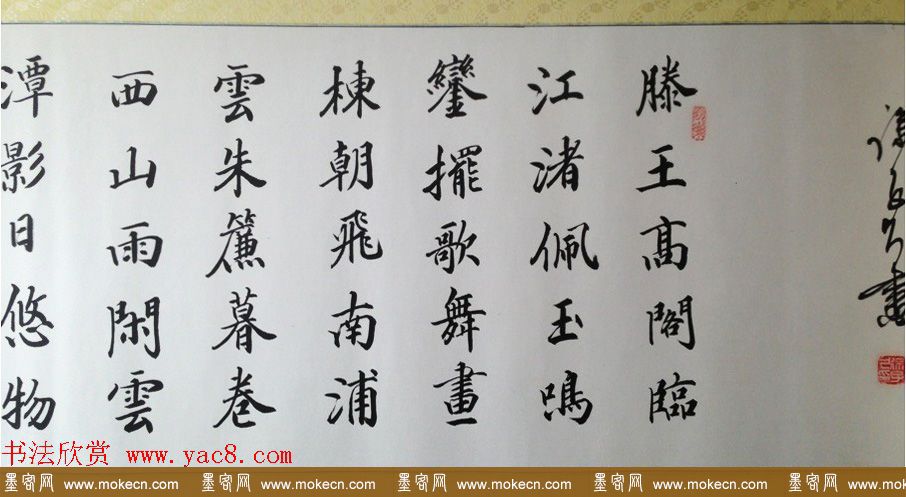 滕王髙閣臨
江渚佩玉鳴
鑾擺歌舞畫
棟朝飛南浦
雲朱簾暮卷
西山雨閑雲
潭影日悠物
书法欣赏 www.yac8.com
墨客网 www.mokecn.com 墨客网 www.mokecn.com 墨客网 www.mokecn.com 墨客网 www.mokecn.com 墨客网 www.m